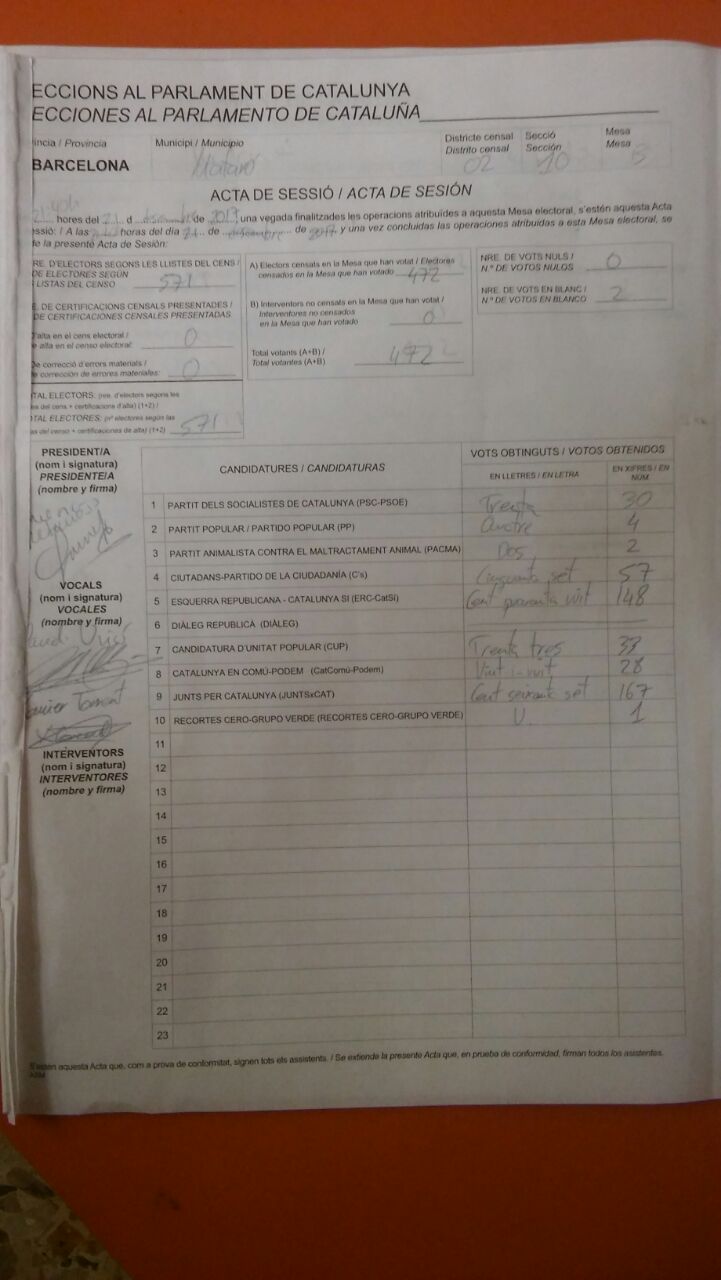 ECCIONS AL PARLAMENT DE CATALUNYA
ECCIONES AL PARLAMENTO DE CATALUÑA
íncia / Provincia
BARCELONA
Municipi / Municipio
Mataró
Districte censal
Distrito censal
02
Secció
Sección
10
Mesa
Mesa
B
ACTA DE SESSIÓ / ACTA DE SESIÓN
hores del 21 d desembre de 2017, una vegada finalitzades les operacions atribuïdes a aquesta Mesa electoral, s'estén aquesta Acta
ssió: / A las horas del día 21 de de 2017 y una vez concluidas las operaciones atribuidas a esta Mesa electoral, se
de la presente Acta de Sesión:
RE. D'ELECTORS SEGONS LES LLISTES DEL CENS /
DE ELECTORES SEGÚN
LISTAS DEL CENSO 571
E. DE CERTIFICACIONS CENSALS PRESENTADES /
DE CERTIFICACIONES CENSALES PRESENTADAS
'alta en el cens electoral /
e alta en el censo electoral: 0
De correcció d'errors materials /
e corrección de errores materiales: 0
TAL ELECTORS: (nre. d'electors segons les
es del cens + certificacions d'alta) (1+2) /
TAL ELECTORES: (nº electores según las
as del censo + certificaciones de alta) (1+2) 571
A) Electors censats en la Mesa que han votat / Electores
censados en la Mesa que han votado 472
B) Interventors no censats en la Mesa que han votat /
Interventores no censados
en la Mesa que han votado 0
Total votants (A+B) /
Total votantes (A+B) 472
NRE. DE VOTS NULS /
N.º DE VOTOS NULOS 0
NRE. DE VOTS EN BLANC /
N.º DE VOTOS EN BLANCO 2
PRESIDENT/A
(nom i signatura)
PRESIDENTE/A
(nombre y firma)
VOCALS
(nom i signatura)
VOCALES
(nombre y firma)
Torrent
INTERVENTORS
(nom i signatura)
INTERVENTORES
(nombre y firma)
CANDIDATURES / CANDIDATURAS
VOTS OBTINGUTS / VOTOS OBTENIDOS
EN LLETRES / EN LETRA
EN XIFRES / EN
NÚM.
1 PARTIT DELS SOCIALISTES DE CATALUNYA (PSC-PSOE) Trenta 30
2 PARTIT POPULAR / PARTIDO POPULAR (PP) Quatre 4
3 PARTIT ANIMALISTA CONTRA EL MALTRACTAMENT ANIMAL (PACMA) Dos 2
4 CIUTADANS-PARTIDO DE LA CIUDADANÍA (C's) Cinquanta set 57
5 ESQUERRA REPUBLICANA - CATALUNYA SI (ERC-CatSí) Cent quaranta vuit 148
6 DIÀLEG REPUBLICÀ (DIÀLEG) —
7 CANDIDATURA D'UNITAT POPULAR (CUP) Trenta tres 33
8 CATALUNYA EN COMÚ-PODEM (CatComú-Podem) Vint-i-vuit 28
9 JUNTS PER CATALUNYA (JUNTSxCAT) Cent seixanta set 167
10 RECORTES CERO-GRUPO VERDE (RECORTES CERO-GRUPO VERDE) U 1
11
12
13
14
15
16
17
18
19
20
21
22
23
S'estén aquesta Acta que, com a prova de conformitat, signen tots els assistents. / Se extiende la presente Acta que, en prueba de conformidad, firman todos los asistentes.